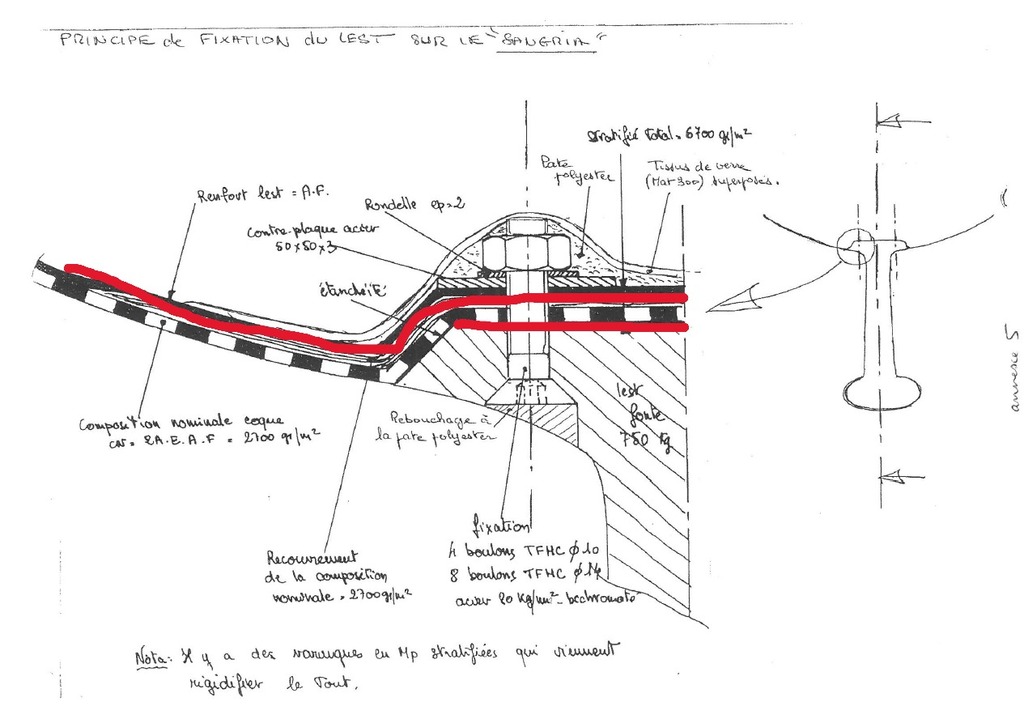 PRINCIPE de FIXATION du LEST SUR LE "SANGRIA"
stratifié total = 6700 gr/m²
Pate
polyester
Tissus de verre
(Mat 300) superposés.
Renfort lest = A.F.
Rondelle ep=2
contre-plaque acier
50x50x3
étanchéité
Composition nominale coque
= 2A.E.A.F = 2700 gr/m²
Rebouchage à
la pate polyester
lest
fonte
750 Kg
Recouvrement
de la composition
nominale = 2700 gr/m²
fixation
4 boulons TFHC ϕ 10
8 boulons TFHC ϕ 14
acier 80 Kg/mm² - bichromaté
Nota: Il y a des varangues en Mp stratifiées qui viennent
rigidifier le Tout.
annexe 5